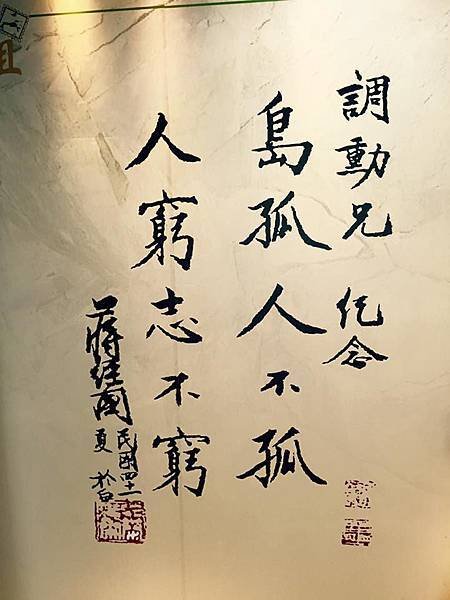 調動兄 紀念
島孤人不孤
人窮志不窮
蔣經國 民國四十一
夏 於白